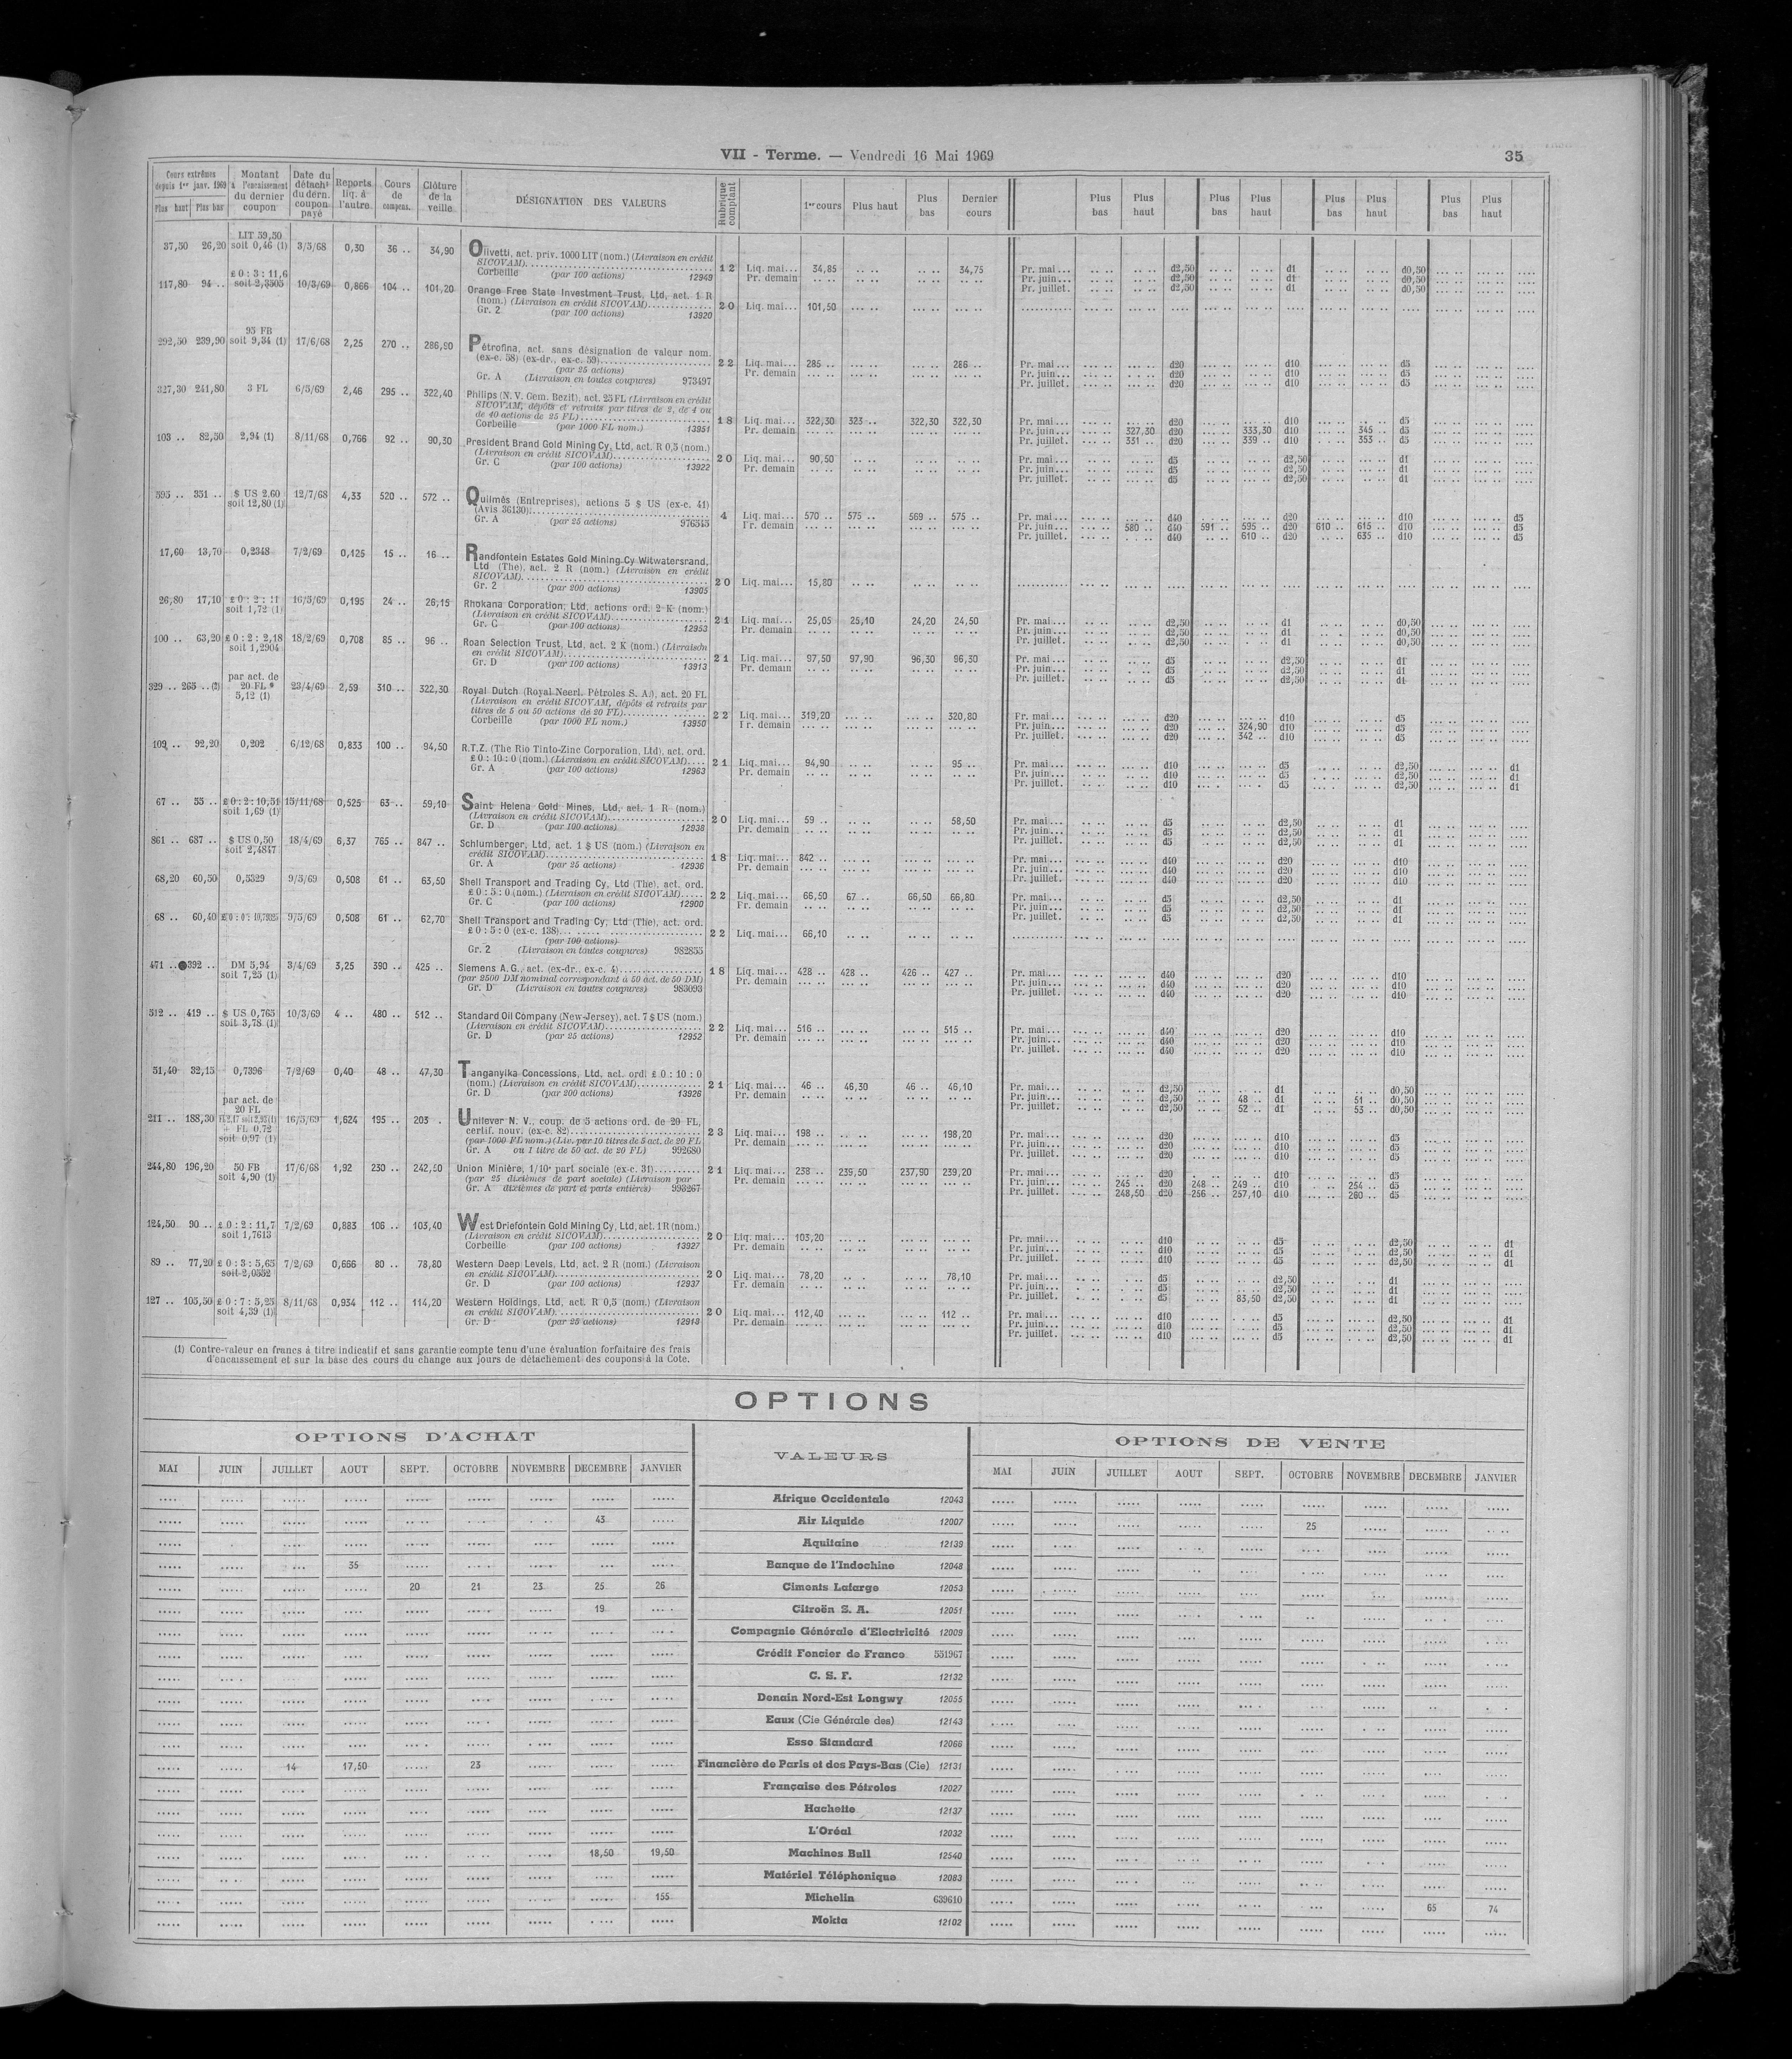 VII - Terme. — Vendredi 16 Mai 1969 35
Cours extrêmes depuis 1er janv. 1969 Plus haut Plus bas | Montant à l'encaissement du dernier coupon | Date du détacht du dern. coupon payé | Reports liq. à l'autre | Cours de compens. | Clôture de la veille | DÉSIGNATION DES VALEURS | Rubrique comptant | 1er cours | Plus haut | Plus bas | Dernier cours | Plus bas | Plus haut | Plus bas | Plus haut | Plus bas | Plus haut | Plus bas | Plus haut
LIT 59,50
37,50 26,20 soit 0,46 (1) 3/3/68 0,30 36 .. 34,90 Olivetti, act. priv. 1000 LIT (nom.) (Livraison en crédit
SICOVAM)
Corbeille (par 100 actions) 12949 12 Liq. mai... 34,85 34,75 Pr. mai... d2,50 d1 d0,50
Pr. demain Pr. juin... d2,50 d1 d0,50
Pr. juillet. d2,50 d1 d0,50
£ 0 : 3 : 11,6
117,80 94 .. soit 2,3505 10/3/69 0,866 104 .. 101,20 Orange Free State Investment Trust, Ltd, act. 1 R
(nom.) (Livraison en crédit SICOVAM)
Gr. 2 (par 100 actions) 13920 20 Liq. mai... 101,50
95 FB
292,50 239,90 soit 9,34 (1) 17/6/68 2,25 270 .. 286,90 Pétrofina, act. sans désignation de valeur nom.
(ex-c. 58) (ex-dr., ex-c. 59)
(par 25 actions)
Gr. A (Livraison en toutes coupures) 973497 22 Liq. mai... 285 .. 286 .. Pr. mai... d20 d10 d5
Pr. demain Pr. juin... d20 d10 d5
Pr. juillet. d20 d10 d5
327,30 241,80 3 FL 6/5/69 2,46 295 .. 322,40 Philips (N. V. Gem. Bezit), act. 25 FL (Livraison en crédit
SICOVAM, dépôts et retraits par titres de 2, de 4 ou
de 40 actions de 25 FL)
Corbeille (par 1000 FL nom.) 13951 18 Liq. mai... 322,30 323 .. 322,30 322,30 Pr. mai... d20 d10 d5
Pr. demain Pr. juin... 327,30 d20 333,30 d10 345 .. d5
Pr. juillet. 331 .. d20 339 .. d10 353 .. d5
103 .. 82,50 2,94 (1) 8/11/68 0,766 92 .. 90,30 President Brand Gold Mining Cy, Ltd, act. R 0,5 (nom.)
(Livraison en crédit SICOVAM)
Gr. C (par 100 actions) 13922 20 Liq. mai... 90,50 Pr. mai... d5 d2,50 d1
Pr. demain Pr. juin... d5 d2,50 d1
Pr. juillet. d5 d2,50 d1
595 .. 351 .. $ US 2,60 soit 12,80 (1) 12/7/68 4,33 520 .. 572 .. Quilmès (Entreprises), actions 5 $ US (ex-c. 41)
(Avis 36130)
Gr. A (par 25 actions) 976345 4 Liq. mai... 570 .. 575 .. 569 .. 575 .. Pr. mai... d40 d20 d10 d5
Pr. demain Pr. juin... 580 .. d40 591 .. 595 .. d20 610 .. 615 .. d10 d5
Pr. juillet. d40 610 .. d20 635 .. d10 d5
17,60 13,70 0,2348 7/2/69 0,125 15 .. 16 .. Randfontein Estates Gold Mining Cy Witwatersrand,
Ltd (The), act. 2 R (nom.) (Livraison en crédit
SICOVAM)
Gr. 2 (par 200 actions) 13905 20 Liq. mai... 15,80
26,80 17,10 £ 0 : 2 : 11 soit 1,72 (1) 16/5/69 0,195 24 .. 26,15 Rhokana Corporation, Ltd, actions ord. 2 K (nom.)
(Livraison en crédit SICOVAM)
Gr. C (par 100 actions) 12953 21 Liq. mai... 25,05 25,10 24,20 24,50 Pr. mai... d2,50 d1 d0,50
Pr. demain Pr. juin... d2,50 d1 d0,50
Pr. juillet. d2,50 d1 d0,50
100 .. 63,20 £ 0 : 2 : 2,18 soit 1,2904 18/2/69 0,708 85 .. 96 .. Roan Selection Trust, Ltd, act. 2 K (nom.) (Livraison
en crédit SICOVAM)
Gr. D (par 100 actions) 13913 21 Liq. mai... 97,50 97,90 96,30 96,30 Pr. mai... d5 d2,50 d1
Pr. demain Pr. juin... d5 d2,50 d1
Pr. juillet. d5 d2,50 d1
par act. de
20 FL *
329 .. 265 .. 5,12 (1) 23/4/69 2,59 310 .. 322,30 Royal Dutch (Royal Neerl. Pétroles S. A.), act. 20 FL
(Livraison en crédit SICOVAM, dépôts et retraits par
titres de 5 ou 50 actions de 20 FL)
Corbeille (par 1000 FL nom.) 13950 22 Liq. mai... 319,20 320,80 Pr. mai... d20 d10 d5
Pr. demain Pr. juin... d20 324,90 d10 d5
Pr. juillet. d20 342 .. d10 d5
109 .. 92,20 0,202 6/12/68 0,833 100 .. 94,50 R.T.Z. (The Rio Tinto-Zinc Corporation, Ltd), act. ord.
£ 0 : 10 : 0 (nom.) (Livraison en crédit SICOVAM)
Gr. A (par 100 actions) 12963 21 Liq. mai... 94,90 95 .. Pr. mai... d10 d5 d2,50 d1
Pr. demain Pr. juin... d10 d5 d2,50 d1
Pr. juillet. d10 d5 d2,50 d1
67 .. 55 .. £ 0 : 2 : 10,51 soit 1,69 (1) 15/11/68 0,525 63 .. 59,10 Saint Helena Gold Mines, Ltd, act. 1 R (nom.)
(Livraison en crédit SICOVAM)
Gr. D (par 100 actions) 12938 20 Liq. mai... 59 .. 58,50 Pr. mai... d5 d2,50 d1
Pr. demain Pr. juin... d5 d2,50 d1
Pr. juillet. d5 d2,50 d1
861 .. 687 .. $ US 0,50 soit 2,4847 18/4/69 6,37 765 .. 847 .. Schlumberger, Ltd, act. 1 $ US (nom.) (Livraison en
crédit SICOVAM)
Gr. A (par 25 actions) 12936 18 Liq. mai... 842 .. Pr. mai... d40 d20 d10
Pr. demain Pr. juin... d40 d20 d10
Pr. juillet. d40 d20 d10
68,20 60,50 0,5329 9/5/69 0,508 61 .. 63,50 Shell Transport and Trading Cy, Ltd (The), act. ord.
£ 0 : 5 : 0 (nom.) (Livraison en crédit SICOVAM)
Gr. C (par 100 actions) 12900 22 Liq. mai... 66,50 67 .. 66,50 66,80 Pr. mai... d5 d2,50 d1
Pr. demain Pr. juin... d5 d2,50 d1
Pr. juillet. d5 d2,50 d1
68 .. 60,40 £ 0 : 0 : 10,7325 9/5/69 0,508 61 .. 62,70 Shell Transport and Trading Cy, Ltd (The), act. ord.
£ 0 : 5 : 0 (ex-c. 138)
(par 100 actions)
Gr. 2 (Livraison en toutes coupures) 982855 22 Liq. mai... 66,10
471 .. 392 .. DM 5,94 soit 7,25 (1) 3/4/69 3,25 390 .. 425 .. Siemens A.G., act. (ex-dr., ex-c. 4)
(par 2500 DM nominal correspondant à 50 act. de 50 DM)
Gr. D (Livraison en toutes coupures) 983093 18 Liq. mai... 428 .. 428 .. 426 .. 427 .. Pr. mai... d40 d20 d10
Pr. demain Pr. juin... d40 d20 d10
Pr. juillet. d40 d20 d10
512 .. 419 .. $ US 0,765 soit 3,78 (1) 10/3/69 4 .. 480 .. 512 .. Standard Oil Company (New-Jersey), act. 7 $ US (nom.)
(Livraison en crédit SICOVAM)
Gr. D (par 25 actions) 12952 22 Liq. mai... 516 .. 515 .. Pr. mai... d40 d20 d10
Pr. demain Pr. juin... d40 d20 d10
Pr. juillet. d40 d20 d10
51,40 32,15 0,7396 7/2/69 0,40 48 .. 47,30 Tanganyika Concessions, Ltd, act. ord. £ 0 : 10 : 0
(nom.) (Livraison en crédit SICOVAM)
Gr. D (par 200 actions) 13926 21 Liq. mai... 46 .. 46,30 46 .. 46,10 Pr. mai... d2,50 d1 d0,50
Pr. demain Pr. juin... d2,50 48 .. d1 51 .. d0,50
Pr. juillet. d2,50 52 .. d1 53 .. d0,50
par act. de
20 FL
211 .. 188,30 + FL 0,72 soit 0,97 (1) 16/5/69 1,624 195 .. 203 . Unilever N. V., coup. de 5 actions ord. de 20 FL,
certif. nouv. (ex-c. 82)
(par 1000 FL nom.) (Liv. par 10 titres de 5 act. de 20 FL
Gr. A ou 1 titre de 50 act. de 20 FL) 992680 23 Liq. mai... 198 .. 198,20 Pr. mai... d20 d10 d5
Pr. demain Pr. juin... d20 d10 d5
Pr. juillet. d20 d10 d5
244,80 196,20 50 FB soit 4,90 (1) 17/6/68 1,92 230 .. 242,50 Union Minière, 1/10e part sociale (ex-c. 31)
(par 25 dixièmes de part sociale) (Livraison par
Gr. A dixièmes de part et parts entières) 993267 21 Liq. mai... 238 .. 239,50 237,90 239,20 Pr. mai... d20 d10 d5
Pr. demain Pr. juin... 245 .. d20 248 .. 249 .. d10 254 .. d5
Pr. juillet. 248,50 d20 256 .. 257,10 d10 260 .. d5
124,50 90 .. £ 0 : 2 : 11,7 soit 1,7613 7/2/69 0,883 106 .. 103,40 West Driefontein Gold Mining Cy, Ltd, act. 1 R (nom.)
(Livraison en crédit SICOVAM)
Corbeille (par 100 actions) 13927 20 Liq. mai... 103,20 Pr. mai... d10 d5 d2,50 d1
Pr. demain Pr. juin... d10 d5 d2,50 d1
Pr. juillet. d10 d5 d2,50 d1
89 .. 77,20 £ 0 : 3 : 5,65 soit 2,0552 7/2/69 0,666 80 .. 78,80 Western Deep Levels, Ltd, act. 2 R (nom.) (Livraison
en crédit SICOVAM)
Gr. D (par 100 actions) 12937 20 Liq. mai... 78,20 78,10 Pr. mai... d5 d2,50 d1
Pr. demain Pr. juin... d5 d2,50 d1
Pr. juillet. d5 83,50 d2,50 d1
127 .. 105,50 £ 0 : 7 : 5,25 soit 4,39 (1) 8/11/68 0,934 112 .. 114,20 Western Holdings, Ltd, act. R 0,5 (nom.) (Livraison
en crédit SICOVAM)
Gr. D (par 25 actions) 12913 20 Liq. mai... 112,40 112 .. Pr. mai... d10 d5 d2,50 d1
Pr. demain Pr. juin... d10 d5 d2,50 d1
Pr. juillet. d10 d5 d2,50 d1
(1) Contre-valeur en francs à titre indicatif et sans garantie compte tenu d'une évaluation forfaitaire des frais
d'encaissement et sur la base des cours du change aux jours de détachement des coupons à la Cote.
OPTIONS
OPTIONS D'ACHAT VALEURS OPTIONS DE VENTE
MAI JUIN JUILLET AOUT SEPT. OCTOBRE NOVEMBRE DECEMBRE JANVIER MAI JUIN JUILLET AOUT SEPT. OCTOBRE NOVEMBRE DECEMBRE JANVIER
Afrique Occidentale 12043
43 Air Liquide 12007 25
Aquitaine 12139
35 Banque de l'Indochine 12048
20 21 23 25 26 Ciments Lafarge 12053
19 Citroën S. A. 12051
Compagnie Générale d'Electricité 12009
Crédit Foncier de France 551967
C. S. F. 12132
Denain Nord-Est Longwy 12055
Eaux (Cie Générale des) 12143
Esso Standard 12066
14 17,50 23 Financière de Paris et des Pays-Bas (Cie) 12131
Française des Pétroles 12027
Hachette 12137
L'Oréal 12032
18,50 19,50 Machines Bull 12540
Matériel Téléphonique 12083
155 Michelin 639610 65 74
Mokta 12102